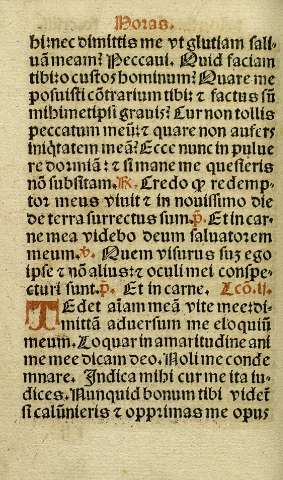 Horas.
bi: nec dimittis me vt glutiam sali-
uam meam? Peccaui. Quid faciam
tibi: o custos hominum? Quare me
posuisti cõtrarium tibi: ⁊ factus sũ
mihimetipsi grauis? Cur non tollis
peccatum meũ: ⁊ quare non aufers
iniq̃tatem meã? Ecce nunc in puluе
re dormiã: ⁊ si mane me quesieris
nõ subsistam. ℟. Credo ꝙ redemp-
tor meus viuit ⁊ in nouissimo die
de terra surrectus sum. p̃. Et in car-
ne mea videbo deum saluatorem
meum. ℣. Quem visurus suʒ ego
ipse ⁊ nõ alius: ⁊ oculi mei conspe-
cturi sunt. p̃. Et in carne. Lcõ. ij.
TEdet aĩam meã vite mee: di-
mittã aduersum me eloquiũ
meum. Loquar in amaritudine ani
me mee dicam deo. Noli me conde
mnare. Indica mihi cur me ita iu-
dices. Nunquid bonum tibi videt᷑
si calũnieris ⁊ opprimas me opus